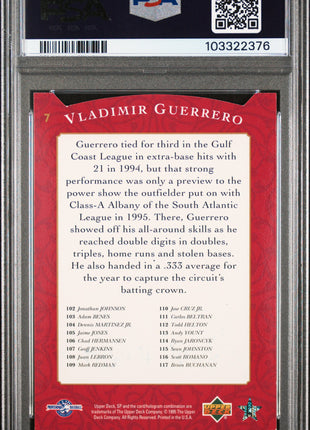 PSA
103322376
7 VLADIMIR GUERRERO
Guerrero tied for third in the Gulf
Coast League in extra-base hits with
21 in 1994, but that strong
performance was only a preview to the
power show the outfielder put on with
Class-A Albany of the South Atlantic
League in 1995. There, Guerrero
showed off his all-around skills as he
reached double digits in doubles,
triples, home runs and stolen bases.
He also handed in a .333 average for
the year to capture the circuit's
batting crown.
102 Jonathan JOHNSON
103 Adam BENES
104 Dennis MARTINEZ JR.
105 Jaime JONES
106 Chad HERMANSEN
107 Geoff JENKINS
108 Juan LEBRON
109 Mark REDMAN
110 Jose CRUZ JR.
111 Carlos BELTRAN
112 Todd HELTON
113 Andy YOUNT
114 Ryan JARONCYK
115 Sean JOHNSTON
116 Scott ROMANO
117 Brian BUCHANAN
Upper Deck, SP and the card/hologram combination are
trademarks of The Upper Deck Company. © 1995 The Upper
Deck Company. All Rights Reserved. Printed in the U.S.A.